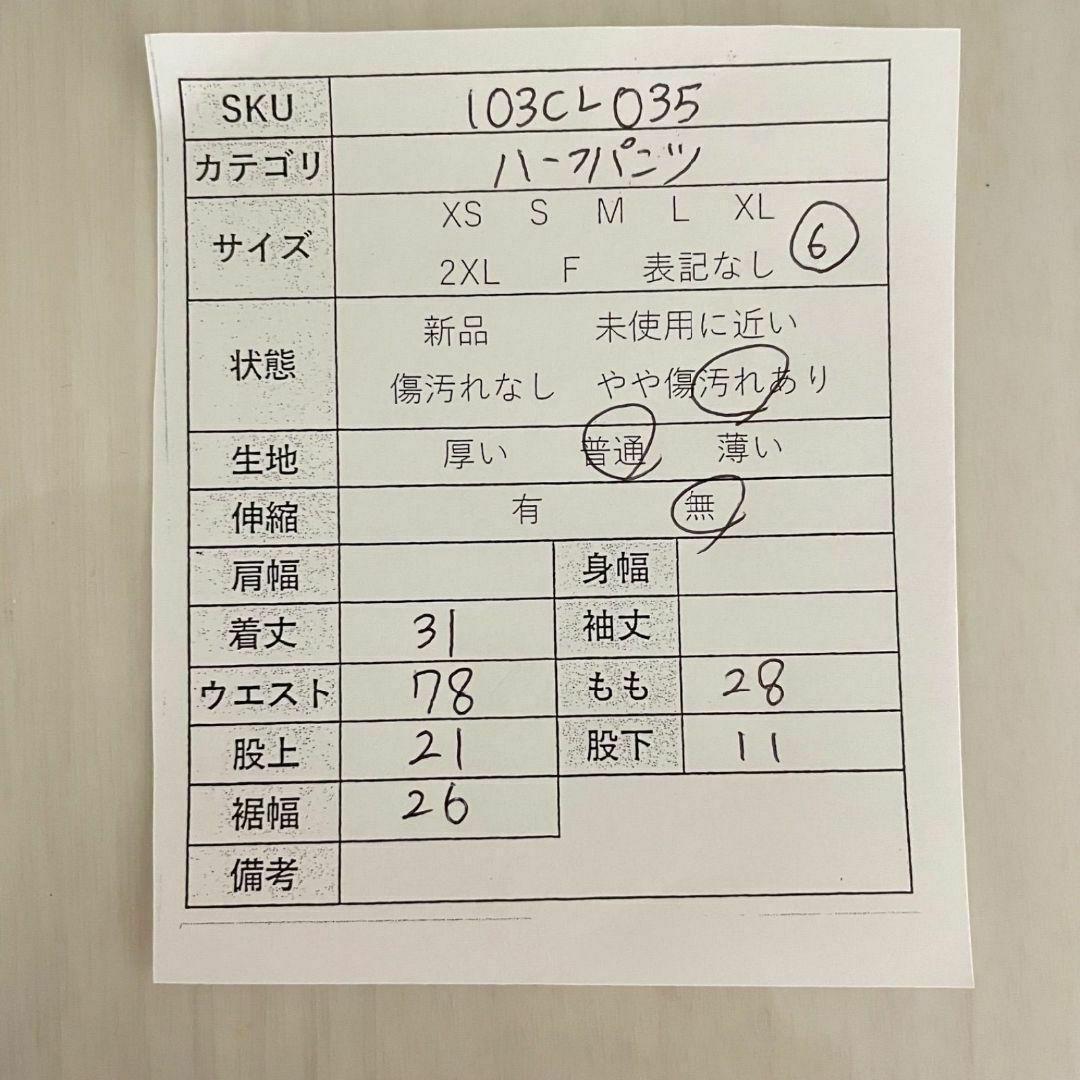 SKU 103CL035
カテゴリ ハーフパンツ
サイズ XS S M L XL
2XL F 表記なし 6
状態 新品 未使用に近い
傷汚れなし やや傷汚れあり
生地 厚い 普通 薄い
伸縮 有 無
肩幅 身幅
着丈 31 袖丈
ウエスト 78 もも 28
股上 21 股下 11
裾幅 26
備考